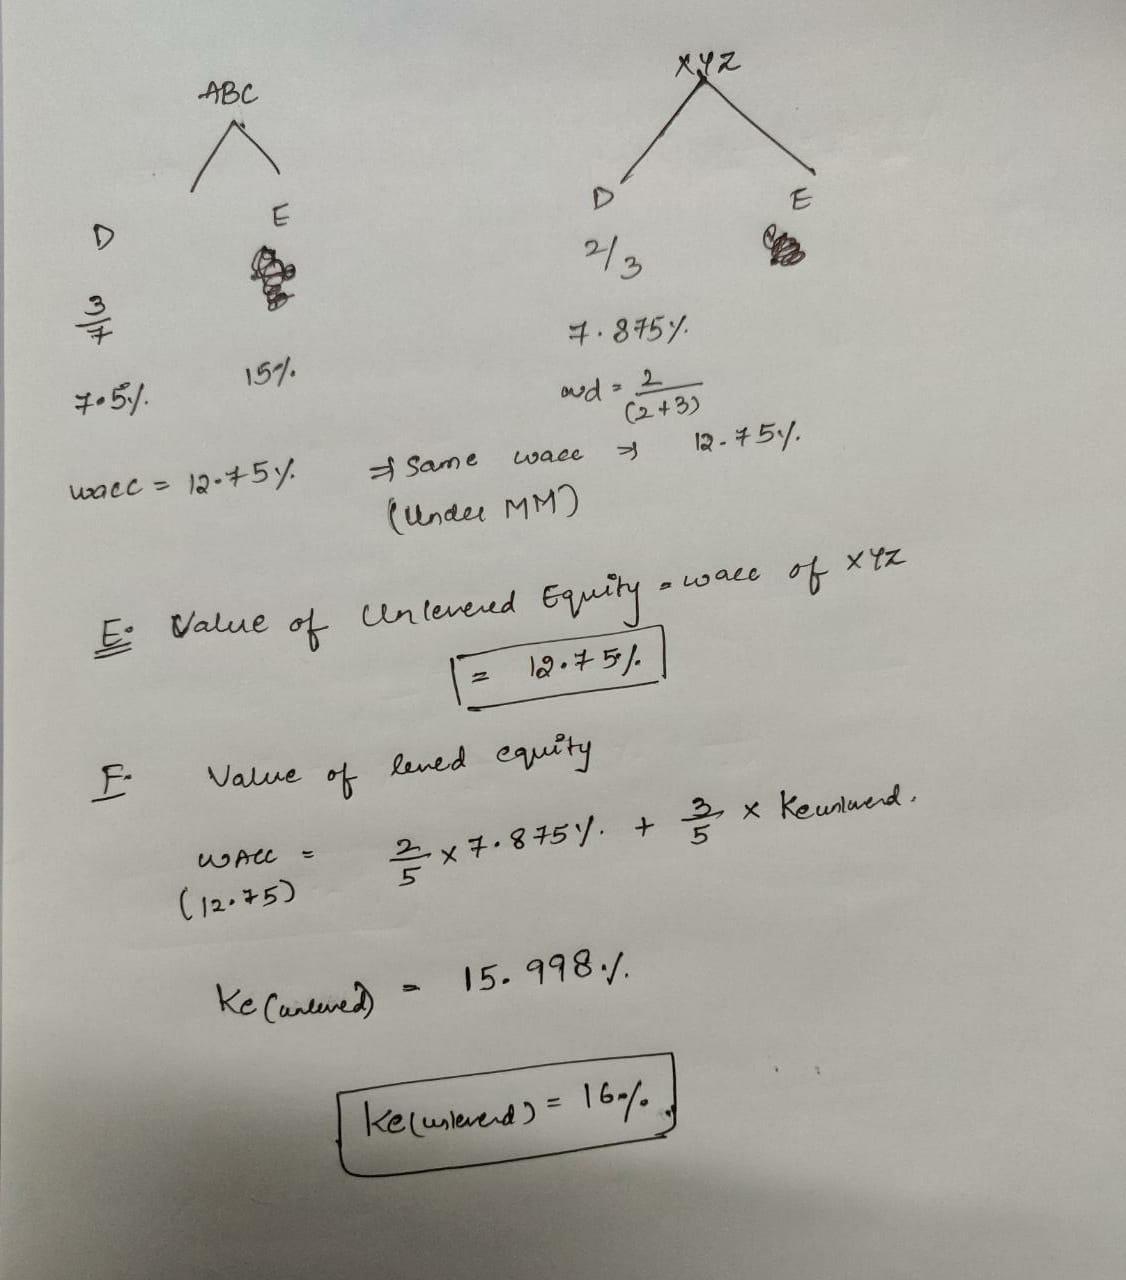 ABC
XYZ
D E
D E
3/7
2/3
7.5%. 15%.
7.875%.
wd = 2/(2+3)
wacc = 12.75% ⇒ Same wacc ⇒ 12.75%.
(Under MM)
E: Value of Unlevered Equity = wacc of XYZ
= 12.75%.
F. Value of levered equity
WACC = 2/5 x 7.875%. + 3/5 x Keunlevered.
(12.75)
Ke (unlevered) = 15.998%.
Ke (unlevered) = 16%.